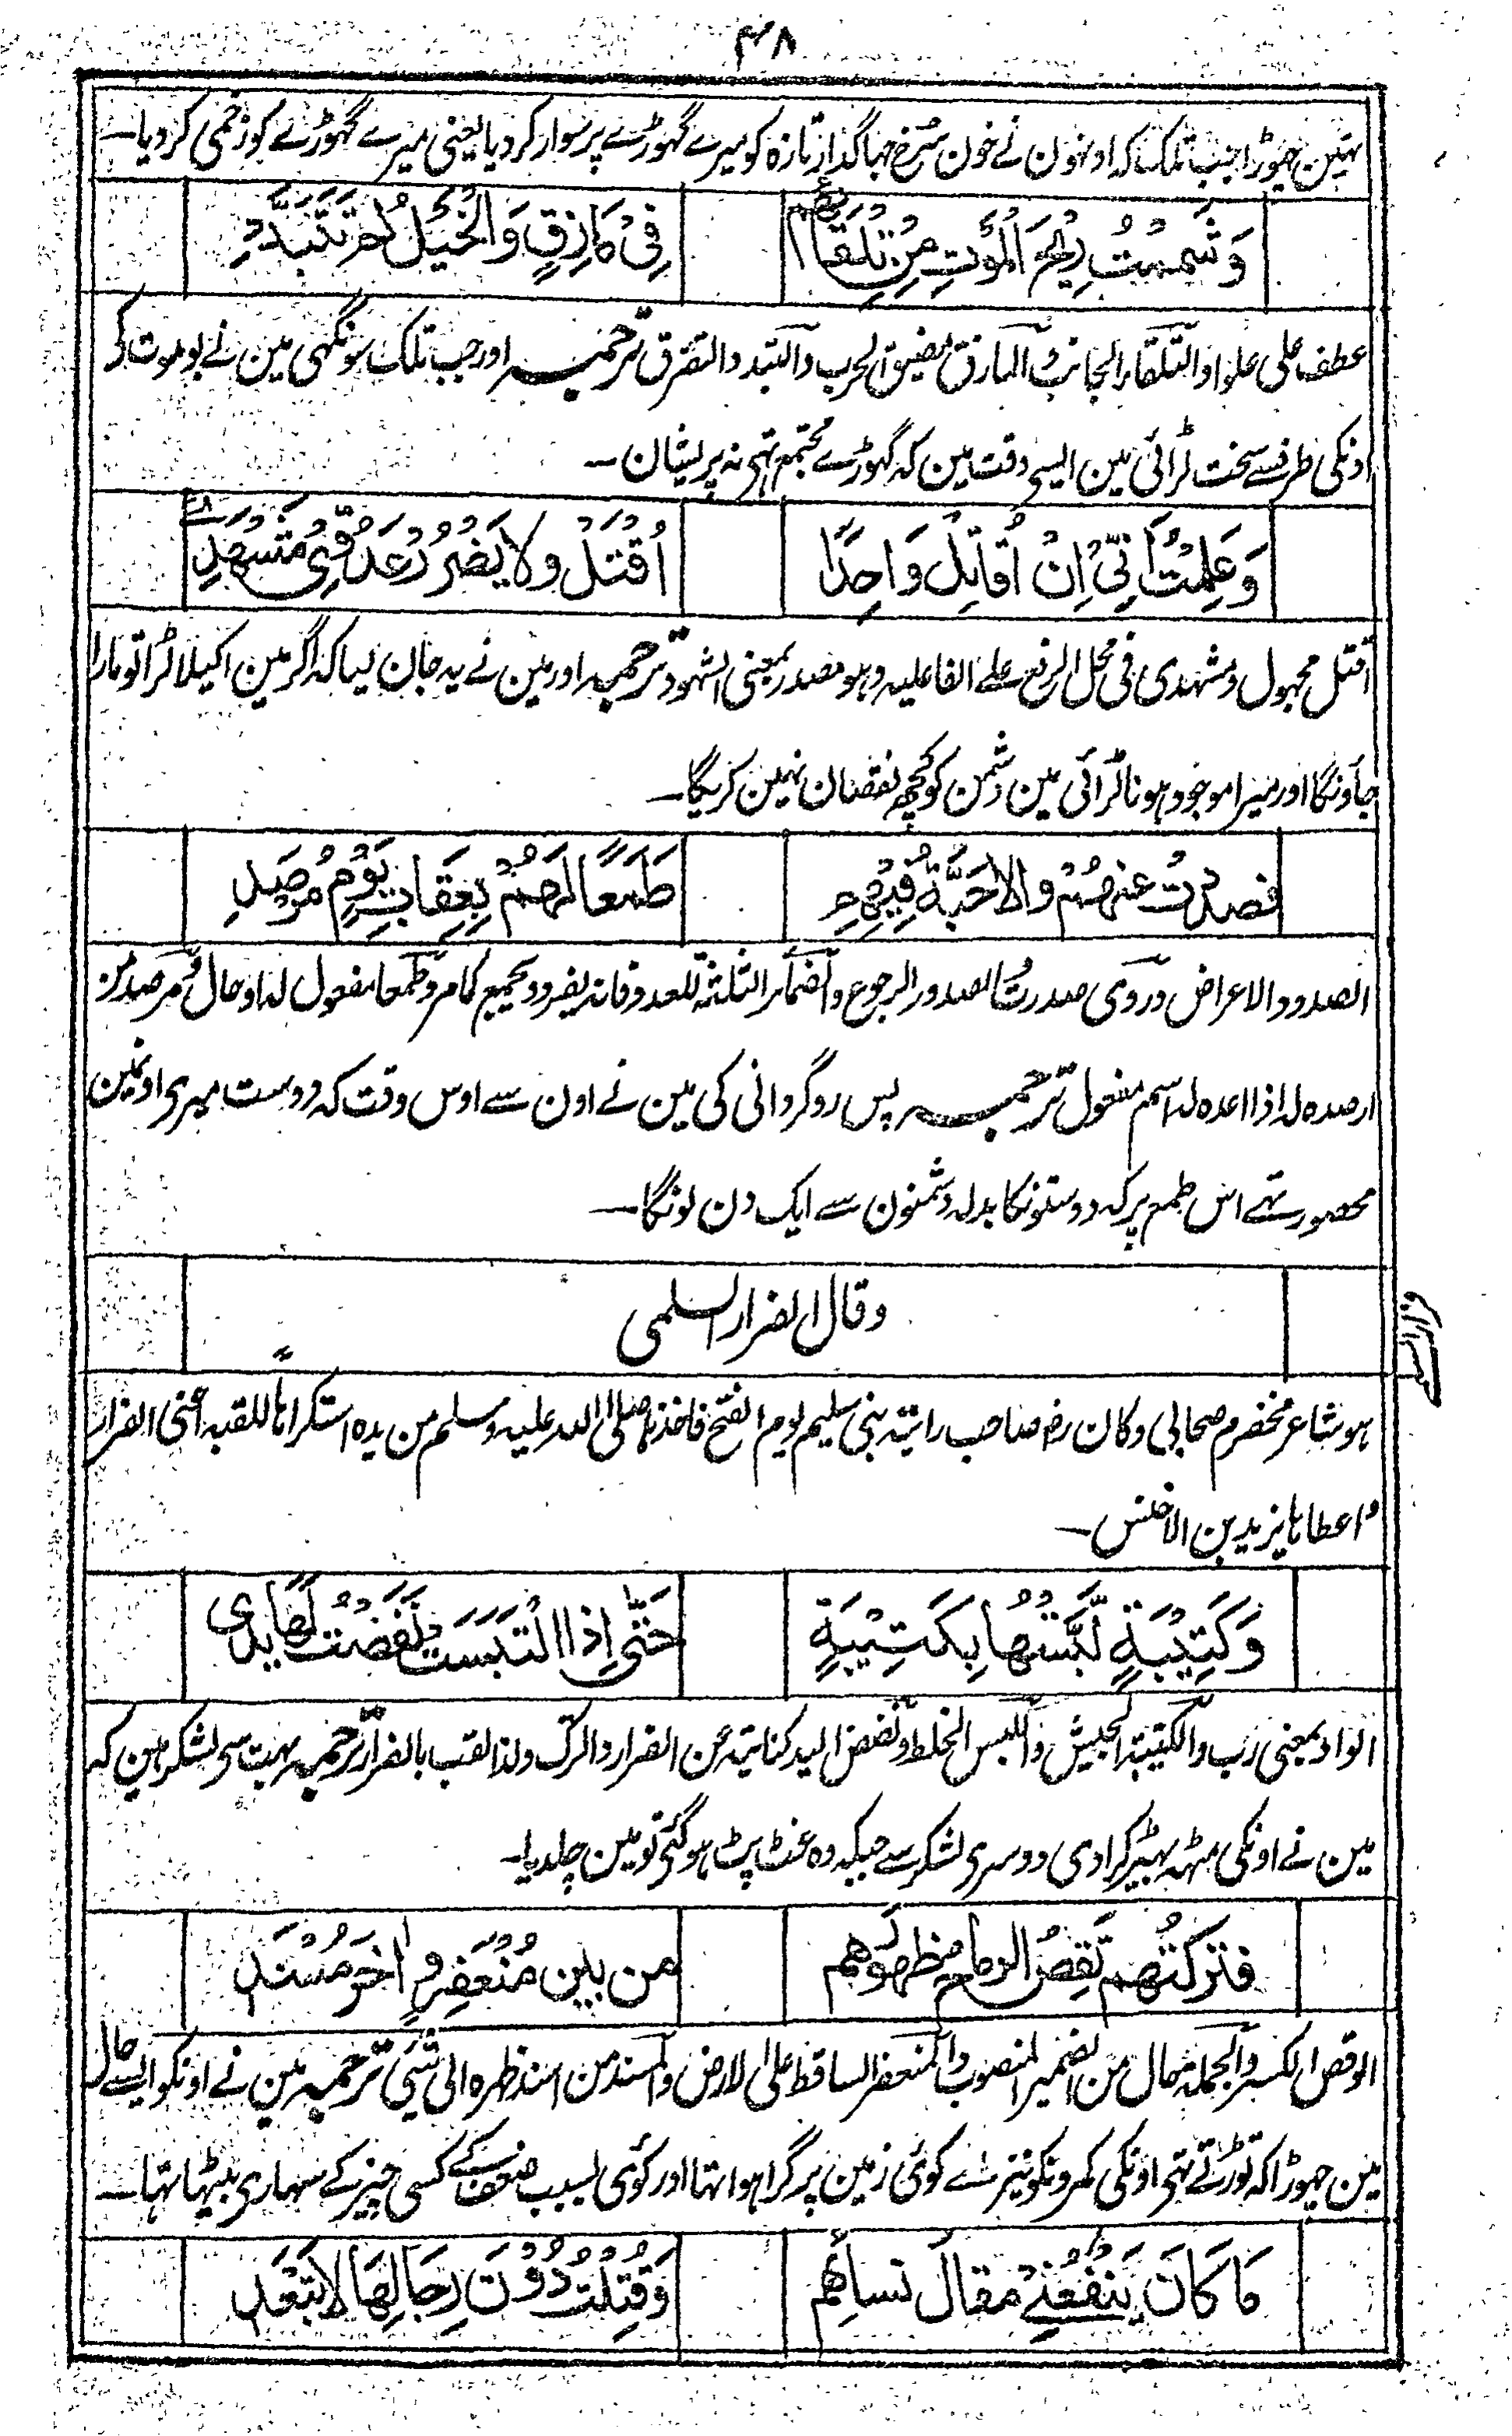 ۴۸
نہین چھوڑا جب تلک کہ اونہون نے خون سُرخ جھاگدار تازہ کو میرے گھوڑے پر سوار کر دیا یعنی میرے گھوڑے کو زخمی کر دیا۔
وَشَمِمْتُ رِيْحَ الْمَوْتِ مِنْ تِلْقَائِهِمْ فِيْ مَازِقٍ وَالْخَيْلُ لَمْ تَتَبَدَّدِ
عطف علی علوا والتلقاء الجانب والمازق مضیق الحرب والتبدد التفرق ترجمہ اور جب تلک سونگھی مین نے بو موت کی
اونکی طرف سے سخت لڑائی مین ایسی وقت مین کہ گھوڑے مجتمع تہی نہ پریشان۔
وَعَلِمْتُ أَنِّيْ اِنْ اُقَاتِلْ وَاحِدًا اُقْتَلْ وَلَا يَضْرُرْ عَدُوِّيْ مَشْهَدِيْ
اقتل مجہول ومشہدی فی محل الرفع علے الفاعلیہ وہو مصدر بمعنی الشہود ترجمہ اور مین نے یہ جان لیا کہ اگر مین اکیلا لڑا تو مارا
جاؤنگا اور میرا موجود ہونا لڑائی مین دشمن کو کچھ نقصان نہین کریگا۔
فصددتُ عنهُمْ والاَحِبَّةُ فِيْهِمِ طَمَعًا لَهُمْ بِعِقَابِ يَوْمٍ مُرْصَدِ
الصدود الاعراض ورَوی صدرتُ الصدور الرجوع والضمائر الثلثۃ للعدو فانہ یفرد ویجمع کما مر وطمعا مفعول لہ او حال ومرصد من
ارصدہ لہ اذا اعدہ لہ اسم مفعول ترجمہ پس روگردانی کی مین نے اون سے اوس وقت کہ دوست میری اونمین
محصور تہے اس طمع پر کہ دوستونکا بدلہ دشمنون سے ایک دن لونگا۔
وقال الفرار السلمی
ہو شاعر مخضرم صحابی وکان رض صاحب رایتہ بنی سلیم یوم الفتح فاخذہا صلی اللہ علیہ وسلم من یدہ استکراہًا للقبہ اعنی الفرار
واعطاہا یزید بن الاخنس۔
وَكَتِيْبَةٍ لَبَّسْتُهَا بِكَتِيْبَةٍ حَتّٰى اِذَا الْتَبَسَتْ نَفَضْتُ لَهَا يَدِيْ
الواو بمعنی رب والکتیبۃ الجیش واللبس الخلط ونفض الید کنایتہ عن الفرار والترک ولذا لقب بالفرار ترجمہ بہت سی لشکر ہین کہ
مین نے اونکی مٹہہ بہیڑ کرا دی دوسری لشکر سے جبکہ وہ غٹ پٹ ہو گئی تو مین چلدیا۔
فتركتُهم تَقِصُ الرماحُ ظهورَهم من بين مُنْعَفِرٍ وَاٰخَرَ مُسْنَدِ
الوقص الکسر والجملۃ حال من الضمیر المنصوب والمنعفر الساقط علی الارض والمسند من اسند ظہرہ الی شیئ ترجمہ مین نے اونکو ایسے حال
مین چھوڑا کہ توڑتے تہی اونکی کمرونکو نیزے کوئی زمین پر گرا ہوا تہا اور کوئی بسبب ضعف کے کسی چیز کے سہاری بیٹھا تہا۔
مَا كَانَ يَنْفَعُنِيْ مقالُ نسائِهم وَقُتِلْتُ دُوْنَ رِجَالِهَا لَا تَبْعَدِ